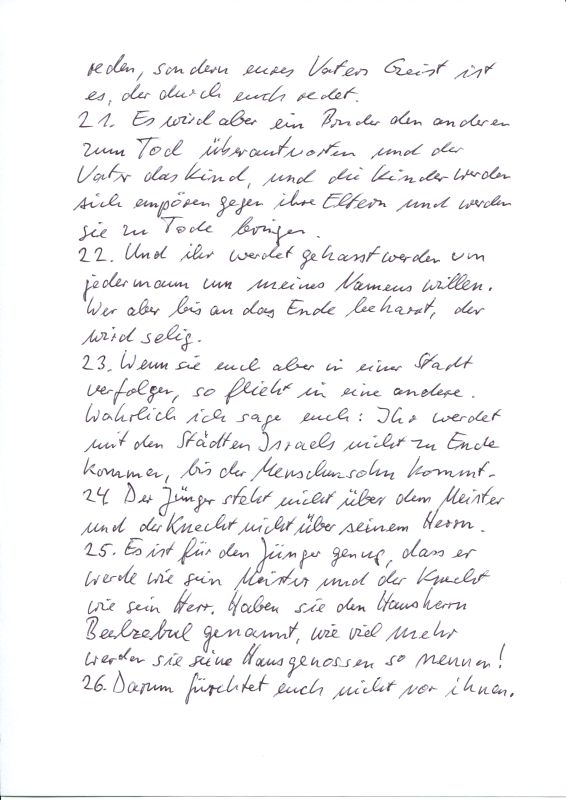 reden, sondern eures Vaters Geist ist
es, der durch euch redet.
21. Es wird aber ein Bruder den anderen
zum Tod überantworten und der
Vater das Kind, und die Kinder werden
sich empören gegen ihre Eltern und werden
sie zu Tode bringen.
22. Und ihr werdet gehasst werden von
jedermann um meines Namens willen.
Wer aber bis an das Ende beharrt, der
wird selig.
23. Wenn sie euch aber in einer Stadt
verfolgen, so flieht in eine andere.
Wahrlich ich sage euch: Ihr werdet
mit den Städten Israels nicht zu Ende
kommen, bis der Menschensohn kommt.
24 Der Jünger steht nicht über dem Meister
und der Knecht nicht über seinem Herrn.
25. Es ist für den Jünger genug, dass er
werde wie sein Meister und der Knecht
wie sein Herr. Haben sie den Hausherrn
Beelzebul genannt, wie viel mehr
werden sie seine Hausgenossen so nennen!
26. Darum fürchtet euch nicht vor ihnen.